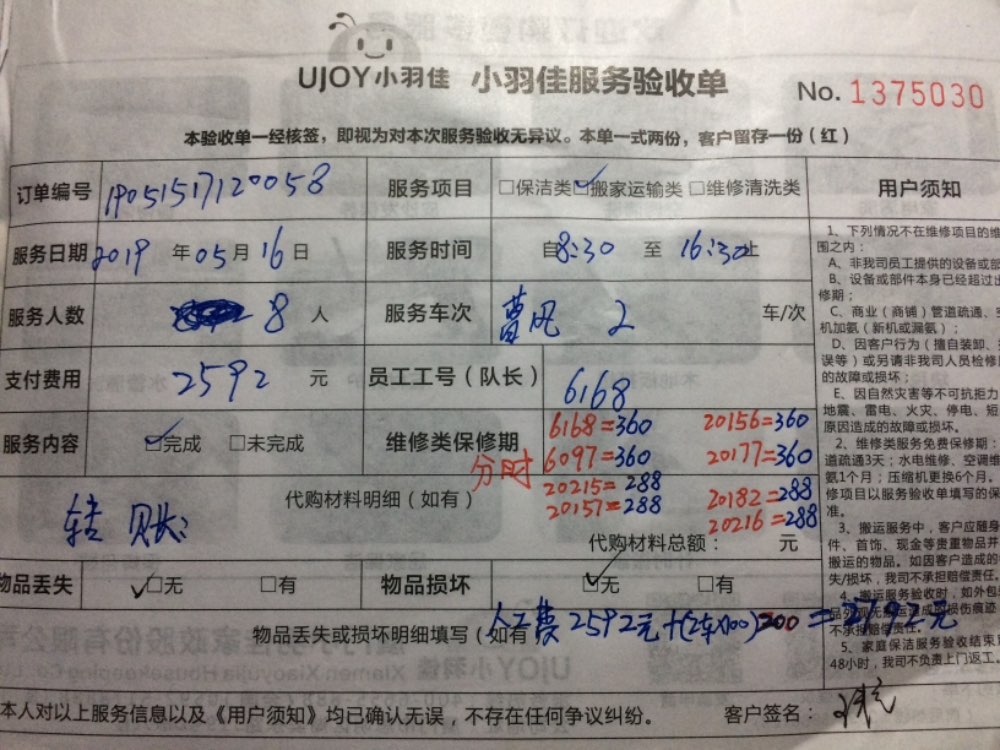 UJOY小羽佳 小羽佳服务验收单 No. 1375030
本验收单一经核签，即视为对本次服务验收无异议。本单一式两份，客户留存一份（红）
订单编号 190515171 20058 服务项目 □保洁类 ☑搬家运输类 □维修清洗类
服务日期 2019 年 05 月 16 日 服务时间 自 8:30 至 16:30 止
服务人数 8 人 服务车次 曹风 2 车/次
支付费用 2592 元 员工工号（队长） 6168
服务内容 ☑完成 □未完成 维修类保修期
分时
6168=360 20156=360
6097=360 20177=360
20215=288 20182=288
20157=288 20216=288
代购材料明细（如有）
转账:
代购材料总额： 元
物品丢失 ☑无 □有 物品损坏 ☑无 □有
物品丢失或损坏明细填写（如有
人工费2592元+(2车×100)200=2792元
本人对以上服务信息以及《用户须知》均已确认无误，不存在任何争议纠纷。 客户签名：
用户须知
1、下列情况不在维修项目的维
围之内：
A、非我司员工提供的设备或部
B、设备或部件本身已经超过出
修期；
C、商业（商铺）管道疏通、空
机加氨（新机或漏氨）；
D、因客户行为（擅自装卸、
误等）或另请非我司人员检修
的故障或损坏；
E、因自然灾害等不可抗拒力
地震、雷电、火灾、停电、短
原因造成的故障或损坏。
2、维修类服务免费保修期：
道疏通3天；水电维修、空调维
氨1个月；压缩机更换6个月。
修项目以服务验收单填写的保
准。
3、搬运服务中，客户应随身
件、首饰、现金等贵重物品并
搬运的物品。如因客户造成的
失/损坏，我司不承担赔偿责任。
4、搬运服务验收时，如外包
不承担赔偿责任。
5、家庭保洁服务验收结束
48小时，我司不负责上门返工。